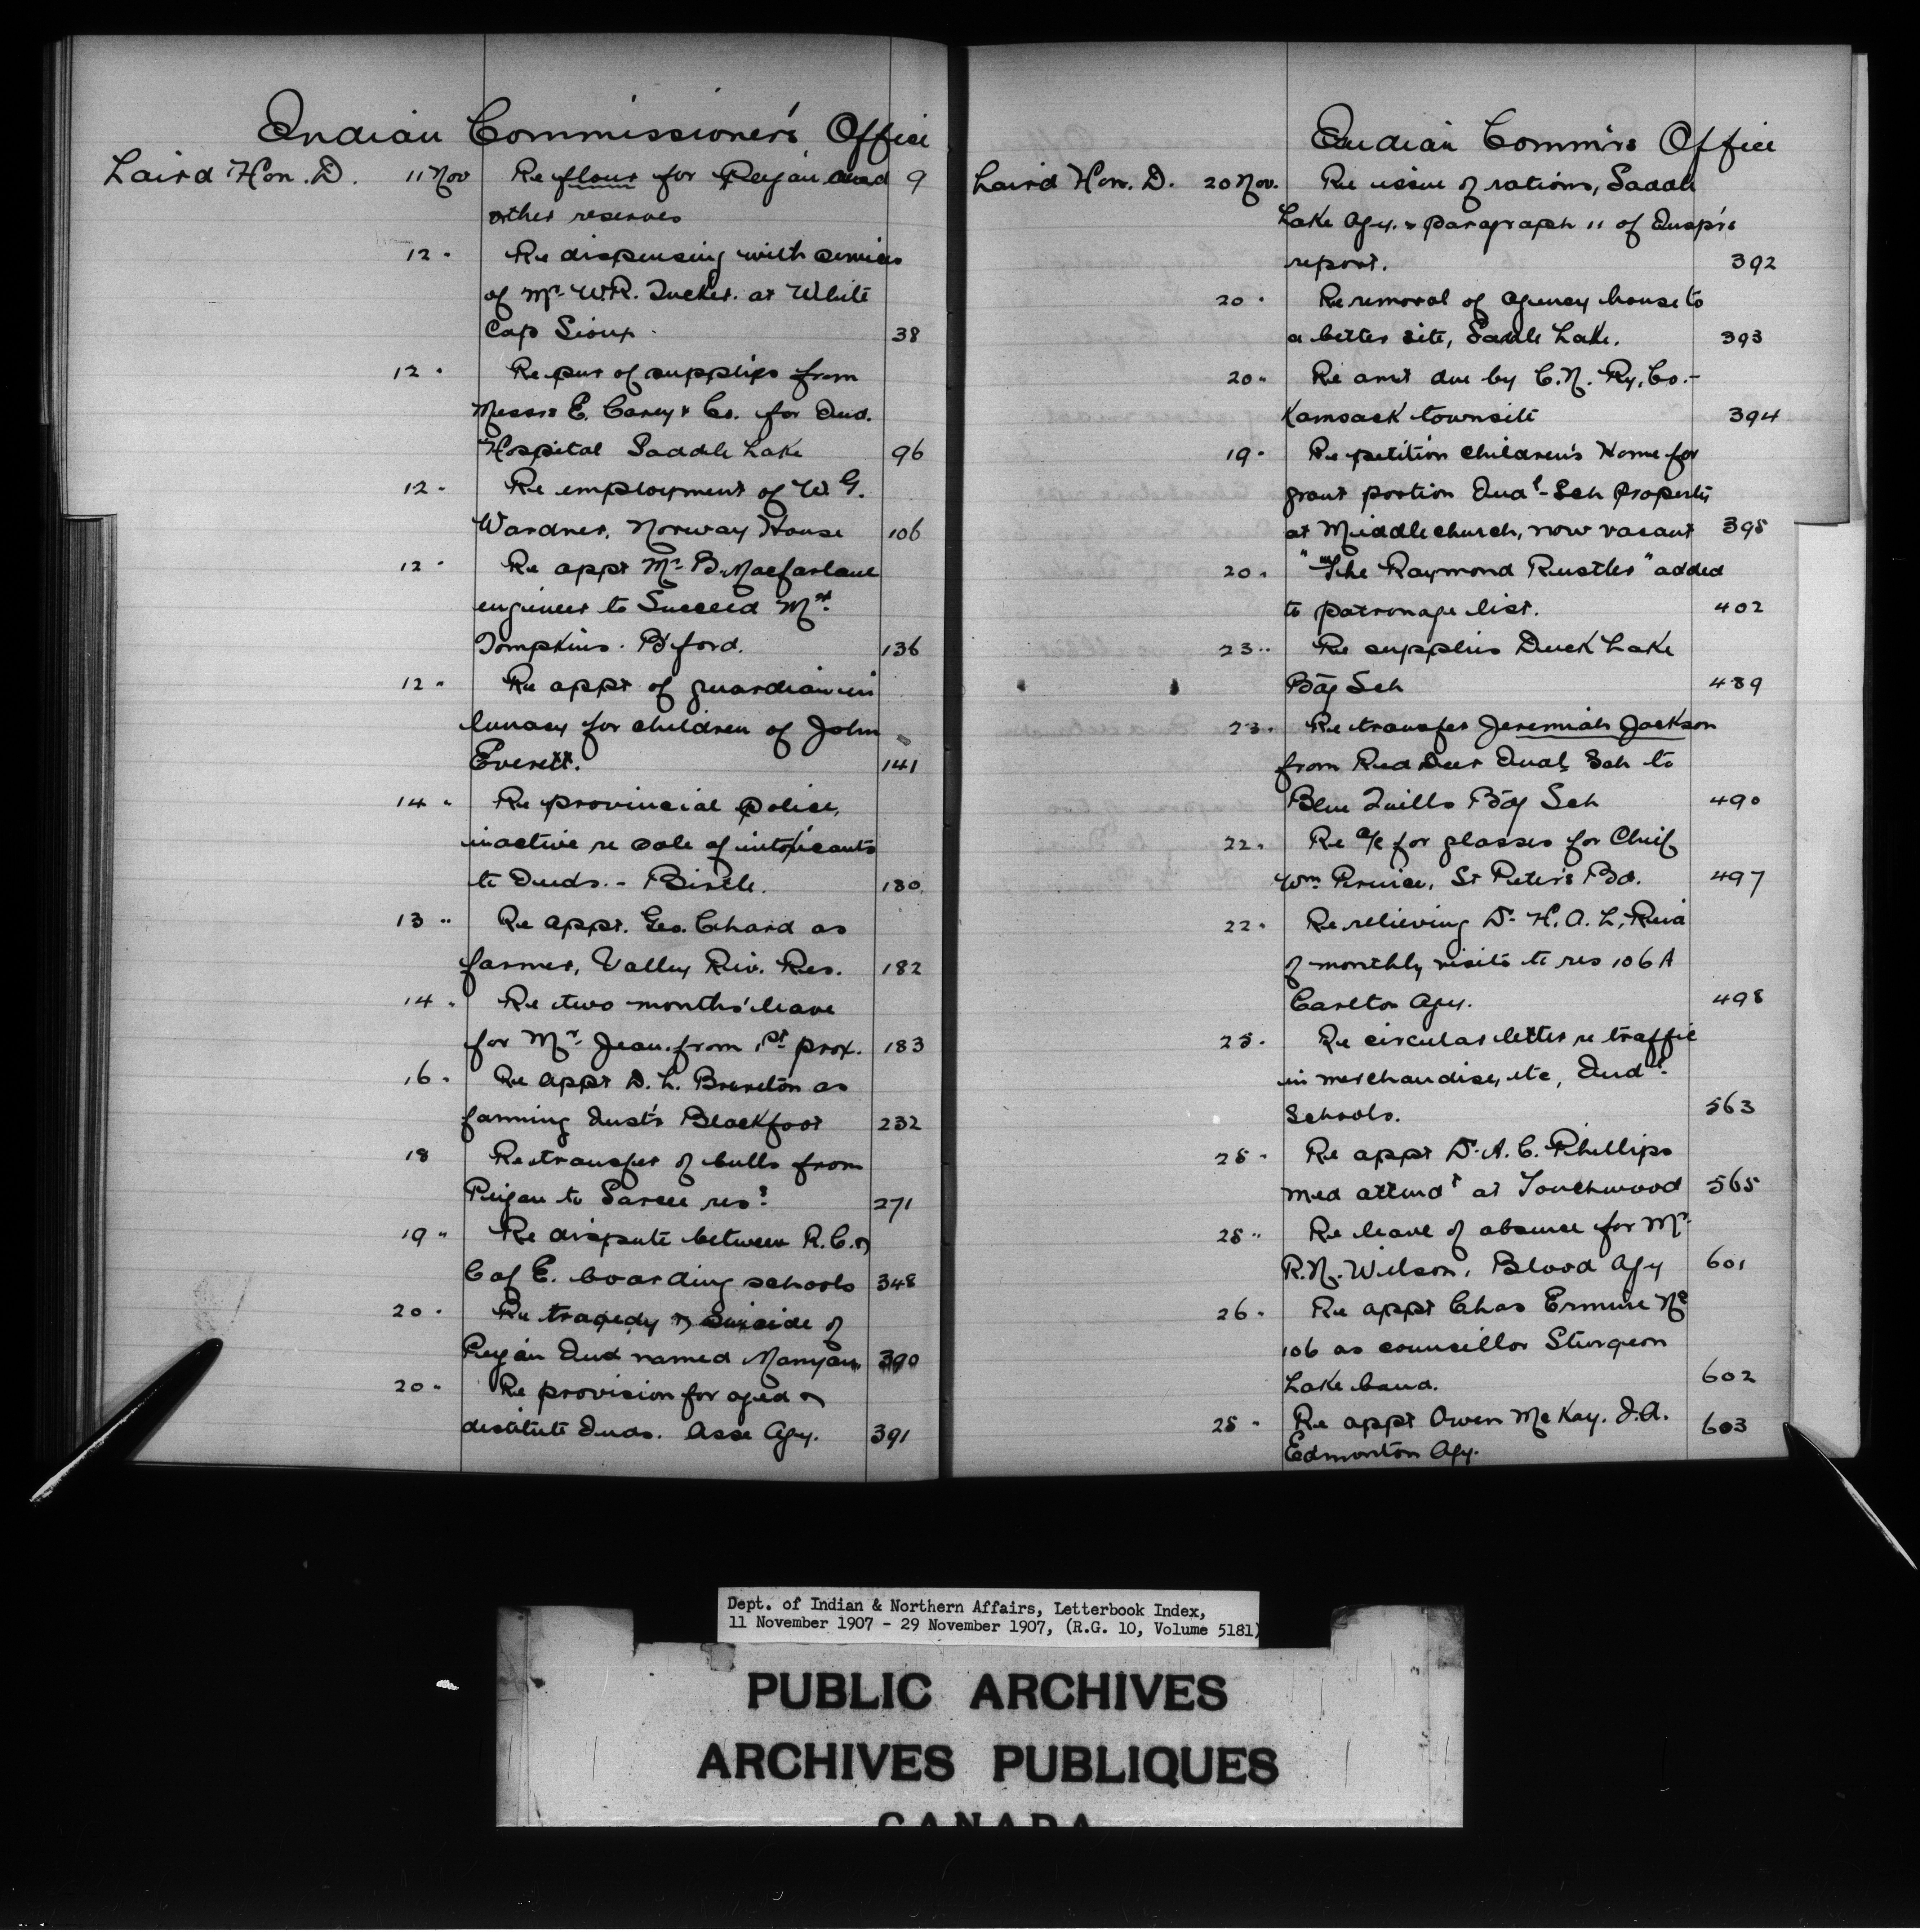 Indian Commissioner's Office
Laird Hon. D. 11 Nov Re flour for Peigan and 9
other reserves
12 " Re dispensing with services
of Mr. W.R. Tucker. at White
Cap Sioux. 38
12 " Re pur of supplies from
Messrs E. Carey & Co. for Ind.
Hospital Saddle Lake 96
12 " Re employment of W. G.
Wardner, Norway House 106
12 " Re appt Mr. B. Macfarlane
engineer to Succeed Mr.
Tompkins. B'ford. 136
12 " Re appt of guardian in
lunacy for children of John
Everett. 141
14 " Re provincial police,
inactive re sale of intoxicants
to Inds. - Birtle. 180
13 " Re appt. Geo. Chard as
farmer, Valley Riv. Res. 182
14 " Re two months' leave
for Mr. Jean from 1st prox. 183
16 " Re appt D. L. Brereton as
farming Inst'r Blackfoot 232
18 Re transfer of bulls from
Peigan to Sarcee res? 271
19 " Re dispute between R.C. &
C of E. boarding schools 348
20 " Re tragedy & suicide of
Peigan Ind named Manyan 390
20 " Re provision for aged &
destitute Inds. Asse Agy. 391
Indian Comm'rs Office
Laird Hon. D. 20 Nov. Re issue of rations, Saddle
Lake Agy. & paragraph 11 of Insp'rs
report. 392
20 " Re removal of agency house to
a better site, Saddle Lake. 393
20 " Re amt due by C.N. Ry. Co. -
Kamsack townsite 394
19 " Re petition Children's Home for
grant portion Indl - Sch property
at Middlechurch, now vacant 395
20 " "The Raymond Rustler" added
to patronage list. 402
23 " Re supplies Duck Lake
B'dg Sch 489
23 " Re transfer Jeremiah Jackson
from Red Deer Indl. Sch to
Blue Quills B'dg Sch 490
22 " Re a/c for glasses for Chief
Wm Prince, St Peter's Bd. 497
22 " Re relieving Dr. H. A. L. Reid
of monthly visits to res 106 A
Carlton Agy. 498
25 " Re circular letter re traffic
in merchandise, etc, Indl.
Schools. 563
25 " Re appt Dr. A. C. Phillips
med attendt at Touchwood 565
25 " Re leave of absence for Mr.
R. N. Wilson, Blood Agy 601
26 " Re appt Chas Ermine No
106 as councillor Sturgeon
Lake band. 602
25 " Re appt Owen McKay. I.A. 603
Edmonton Agy.
Dept. of Indian & Northern Affairs, Letterbook Index,
11 November 1907 - 29 November 1907, (R.G. 10, Volume 5181)
PUBLIC ARCHIVES
ARCHIVES PUBLIQUES
CANADA